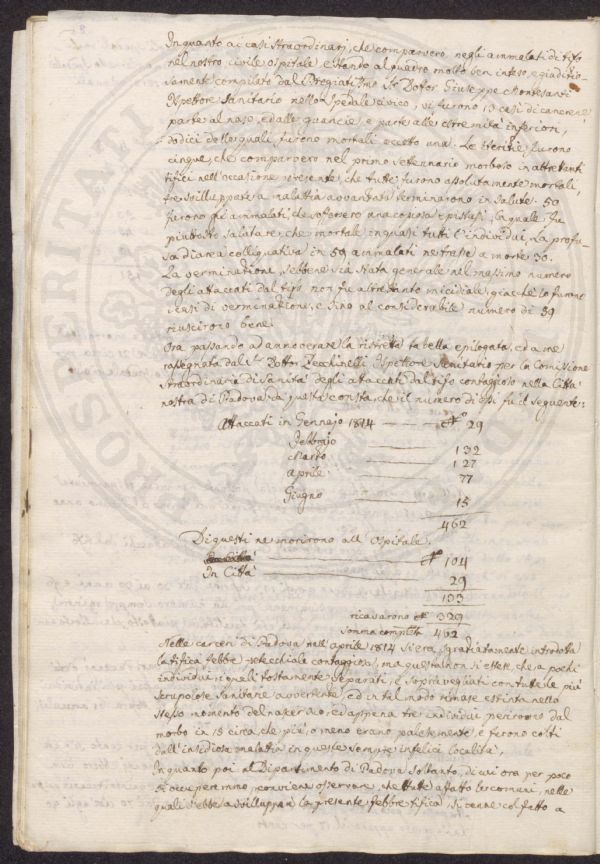 In quanto ai casi straordinarj, che comparvero negli ammalati di tifo
nel nostro civile ospitale, e stando al quadro molto ben inteso, e giudizio-
samente compilato dal Pregiatissmo Sr Dotor Giuseppe Montesanti
Ispettore Sanitario nello Spedale civico, vi furono 13 casi di cancrene
parte al naso, e dalle guancie e parte alle estremità inferiori,
dodici delle quali furono mortali eceto una. Le iterizie furono
cinque, che comparvero nel primo setennario morboso in altretanti
tifici nell'occasione presente, che tutte furono assolutamente mortali,
tre sviluppate a malattia avvanzata terminarono in salute. 50
furono gli ammalati, che sofersero una copiosa epistassi, la quale fu
piuttosto salutare, che mortale in quasi tutti l'individui. La profu-
sa diarea colliquativa in 59 ammalati ne trasse a morte 30.
La verminazione, sebbene sia stata generale nel massimo numero
degli attaccati dal tifo non fu altretanto micidiale, giachè 60 furono
i casi di verminazione, e sino al considerabile numero di 39
riuscirono bene.
Ora passando ad annoverare la ristretta tabella epilogata, ed a me
rassegnata dal Sr Dottor Zecchinelli Ispettore Sanitario per la Comissione
straordinaria di Sanità degli attaccati dal tifo contagioso nella Città
nostra di Padova, da questa consta, che il numero di essi fu il seguente:
Attaccati in Gennajo 1814 — — — No 29
Febbrajo
Marzo 132
Aprile 127
77
Giugno 15
462
Di questi ne morirono all Ospitale.
No 104
In Città 29
133
ricavarono No 329
Somma complete 462
Nelle carceri di Padova nell'aprile 1814 si era sgraziatamente introdota
la tifica febbre petecchiale contagiosa, ma questa non si estese, che a pochi
individui i quali tostamente separati, e sopravegliati con tutte le più
scrupolose sanitarie avvertenze, ed in tal modo rimase estinta nello
stesso momento del nascervi, ed appena tre individui perirono dal
morbo in 15 circa, che più, o meno erano palesemente e furono colti
dall'insidiosa malatia in queste sempre infelici località.
In quanto poi al Dipartimento di Padova soltanto, di cui ora per poco
si occuperemmo, conviene osservare, che tutte affatto le comuni, nelle
quali s'ebbe a svilluppar la presente febbre tifica, si venne col fatto a